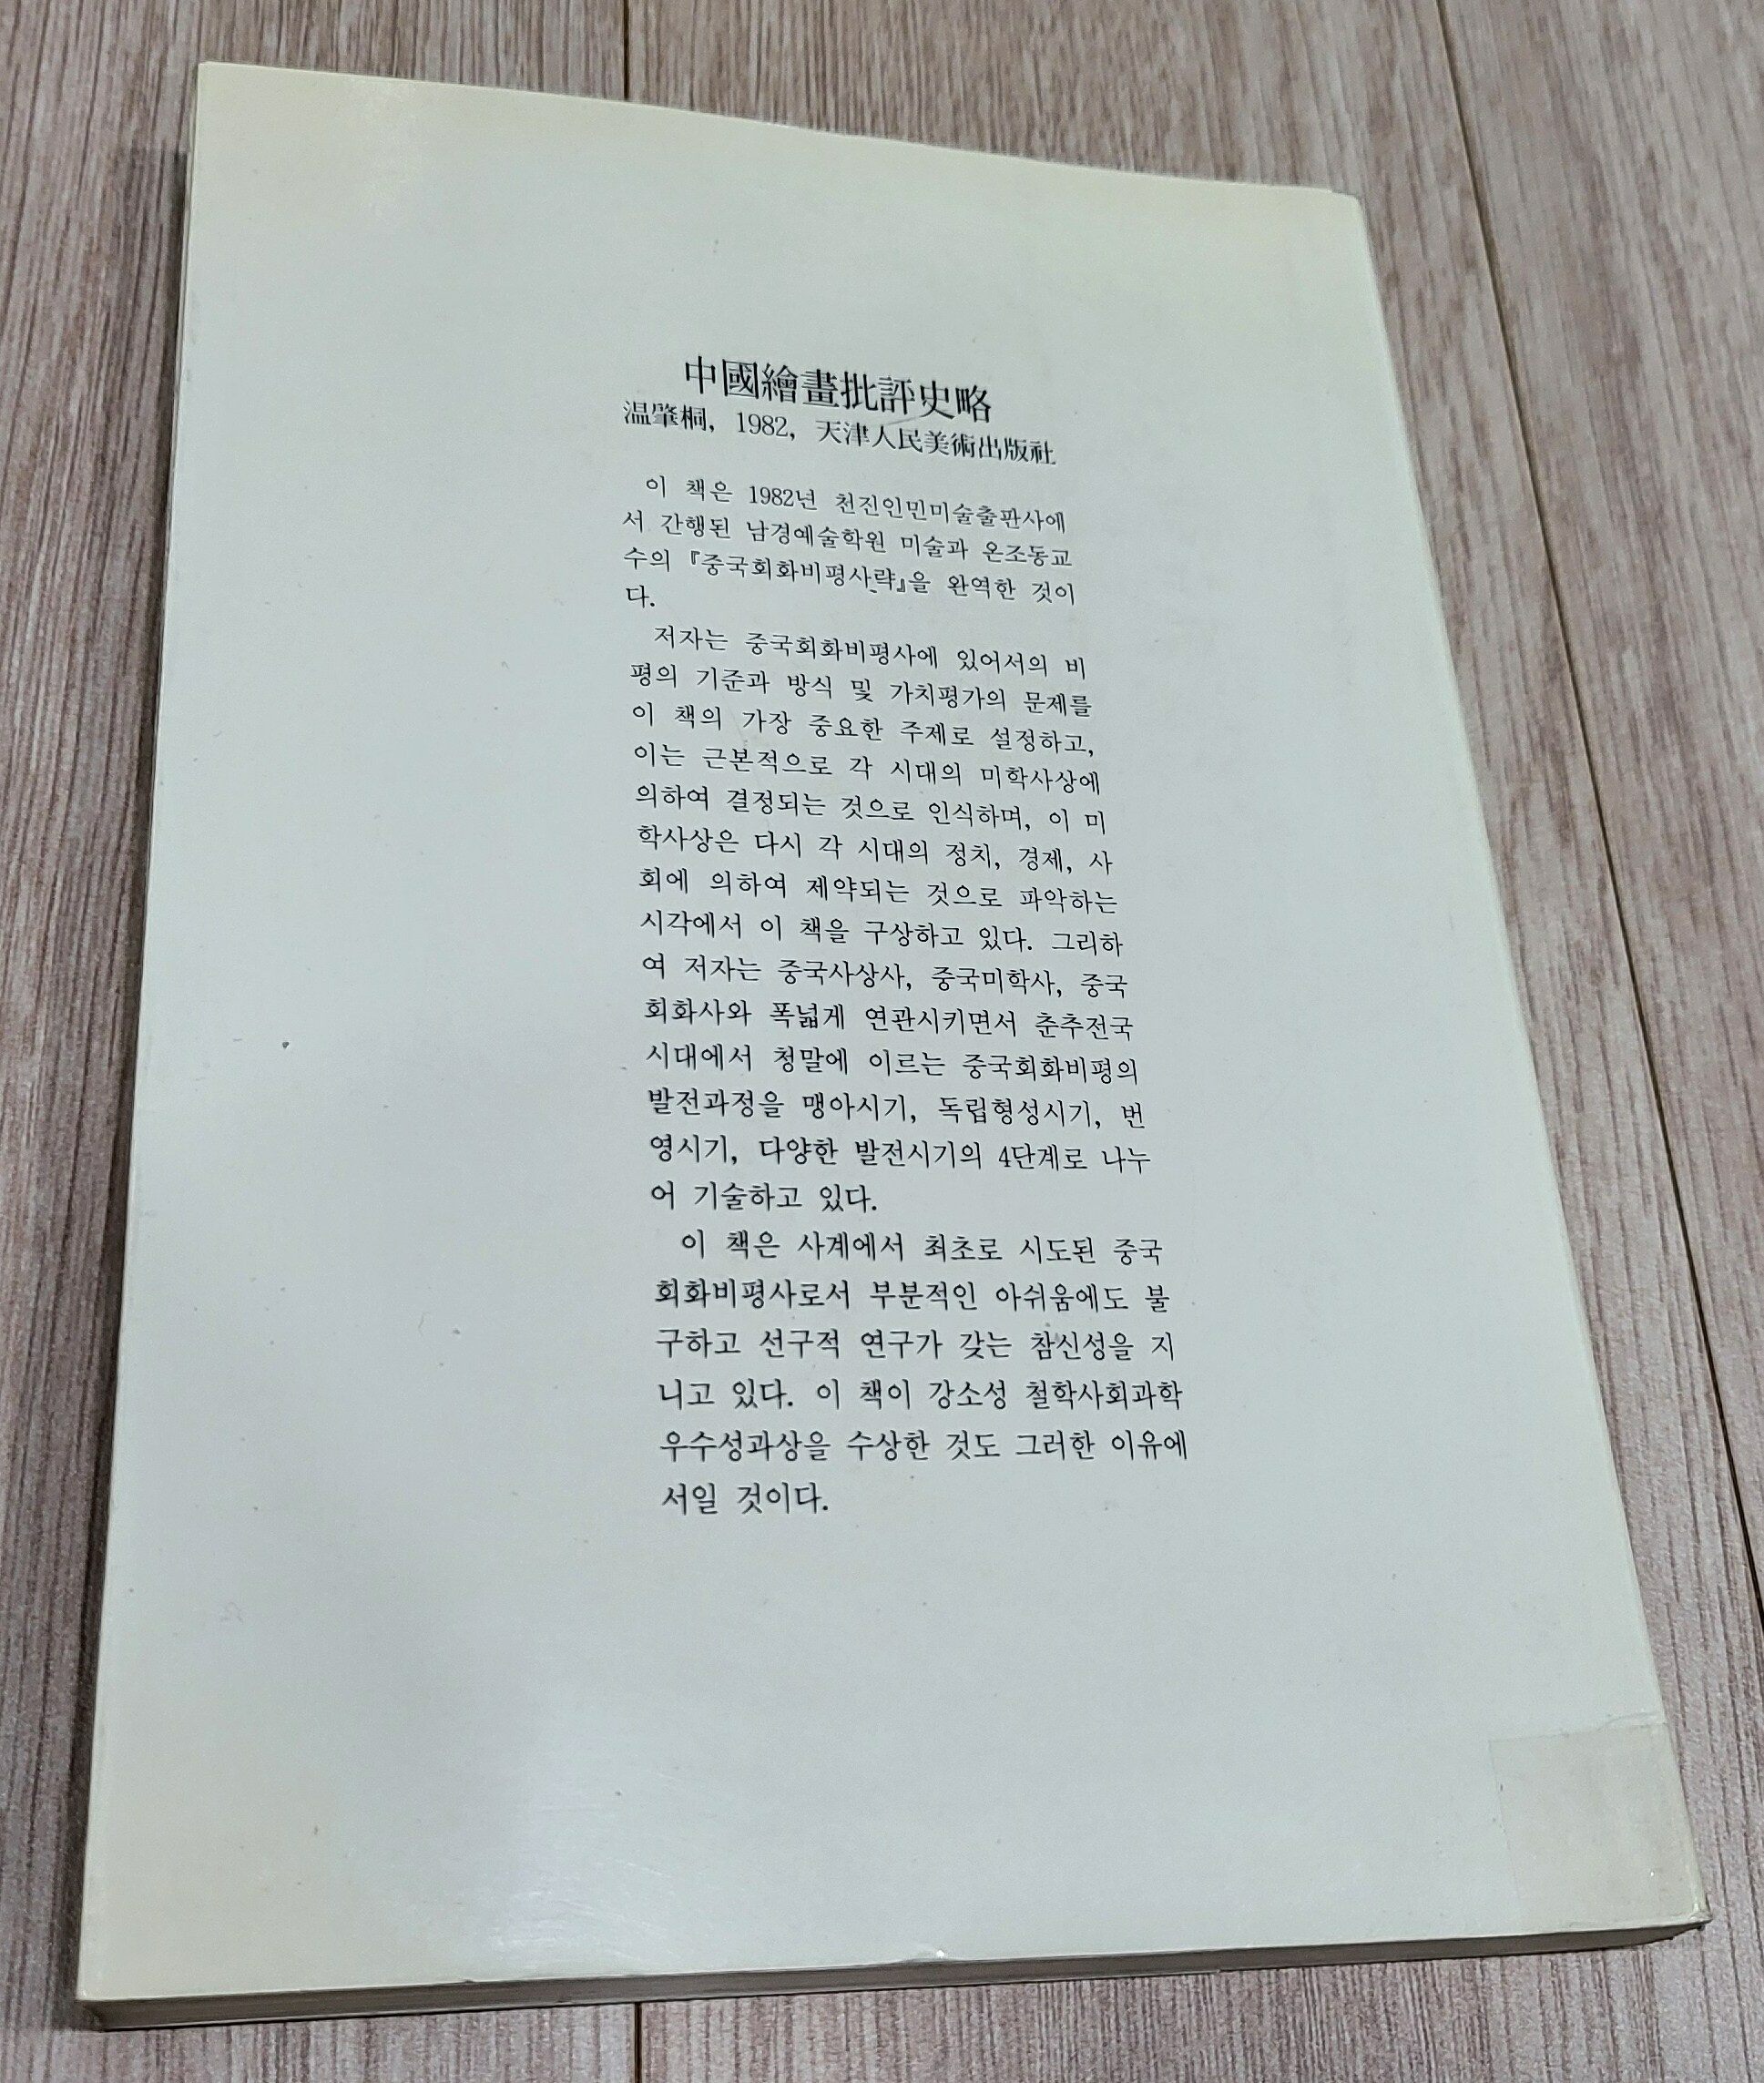 中國繪畫批評史略
温肇桐, 1982, 天津人民美術出版社
이 책은 1982년 천진인민미술출판사에
서 간행된 남경예술학원 미술과 온조동교
수의 『중국회화비평사략』을 완역한 것이
다.
저자는 중국회화비평사에 있어서의 비
평의 기준과 방식 및 가치평가의 문제를
이 책의 가장 중요한 주제로 설정하고,
이는 근본적으로 각 시대의 미학사상에
의하여 결정되는 것으로 인식하며, 이 미
학사상은 다시 각 시대의 정치, 경제, 사
회에 의하여 제약되는 것으로 파악하는
시각에서 이 책을 구상하고 있다. 그리하
여 저자는 중국사상사, 중국미학사, 중국
회화사와 폭넓게 연관시키면서 춘추전국
시대에서 청말에 이르는 중국회화비평의
발전과정을 맹아시기, 독립형성시기, 번
영시기, 다양한 발전시기의 4단계로 나누
어 기술하고 있다.
이 책은 사계에서 최초로 시도된 중국
회화비평사로서 부분적인 아쉬움에도 불
구하고 선구적 연구가 갖는 참신성을 지
니고 있다. 이 책이 강소성 철학사회과학
우수성과상을 수상한 것도 그러한 이유에
서일 것이다.